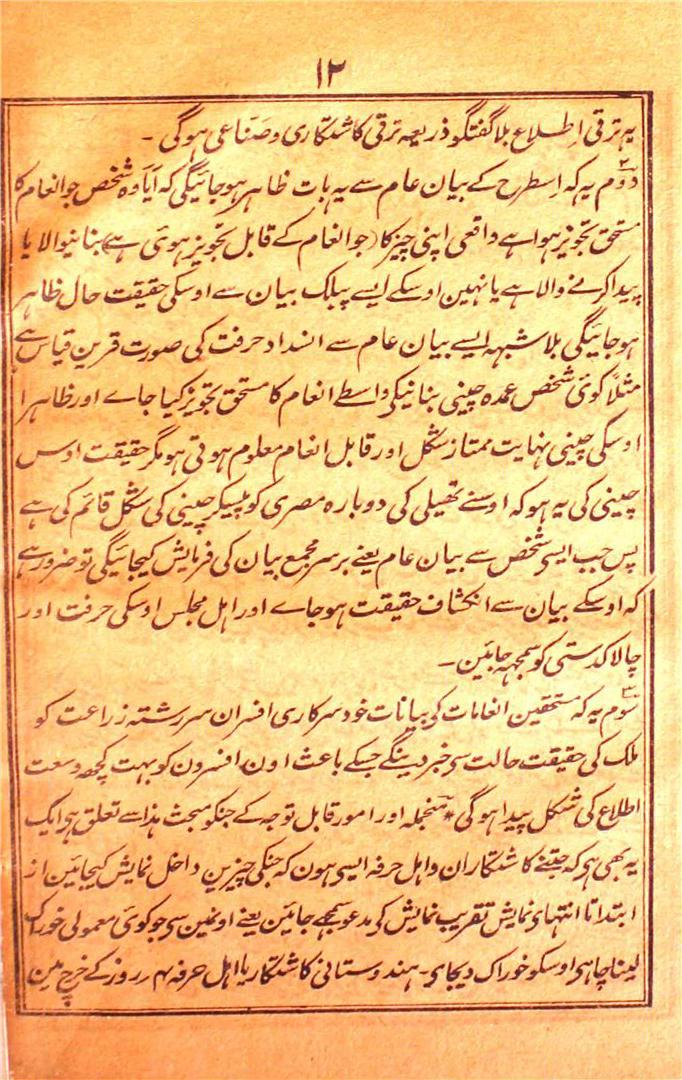 ۱۲
یہ ترقی اِطلاع بلا گفتگو ذریعہ ترقی کاشتکاری و صنّاعی ہوگی ۔
دوم یہ کہ اِسطرح کے بیان عام سے یہ بات ظاہر ہوجائیگی کہ آیا وہ شخص جو انعام کا
مستحق تجویز ہوا ہے واقعی اپنی چیز کا (جو انعام کے قابل تجویز ہوئی ہے) بنانیوالا یا
پیدا کرنے والا ہے یا نہین اوسکے ایسے پبلک بیان سے اوسکی حقیقت حال ظاہر
ہوجائیگی بلاشبہہ ایسے بیان عام سے انسداد حرفت کی صورت قرین قیاس ہے
مثلاً کوئی شخص عمدہ چینی بنانیکی واسطے انعام کا مستحق تجویز کیا جاے اور ظاہرا
اوسکی چینی نہایت ممتاز شکل اور قابل انعام معلوم ہوتی ہو مگر حقیقت اوس
چینی کی یہ ہو کہ اوسنے تھیلی کی دوبارہ مصری کو پیسکر چینی کی شکل قائم کی ہے
پس جب ایسی شخص سے بیان عام یعنے برسر مجمع بیان کی فرمایش کیجائیگی تو ضرور ہے
کہ اوسکے بیان سے انکشاف حقیقت ہوجاے اور اہل مجلس اوسکی حرفت اور
چالاکدستی کو سمجہہ جائین ۔
سوم یہ کہ مستحقین انعامات کی بیانات خود سرکاری افسران سررشتہ زراعت کو
ملک کی حقیقت حالت سی خبر دینگے جسکے باعث اون افسرون کو بہت کچھ وسعت
اطلاع کی شکل پیدا ہوگی * منجملہ اور امور قابل توجہ کے جنکو مبحث ہذا سے تعلق ہی ایک
یہ بھی ہی کہ جتنے کاشتکاران و اہل حرفہ ایسی ہون کہ جنکی چیزین داخل نمایش کیجائین از
ابتدا تا انتہای نمایش تقریب نمایش کی مدعو سمجھے جائین یعنے اونمین سی جو کوئی معمولی خوراک
لینا چاہی اوسکو خوراک دیجای ۔ ہندوستانی کاشتکار یا اہل حرفہ ۴ر روز کے خرچ مین